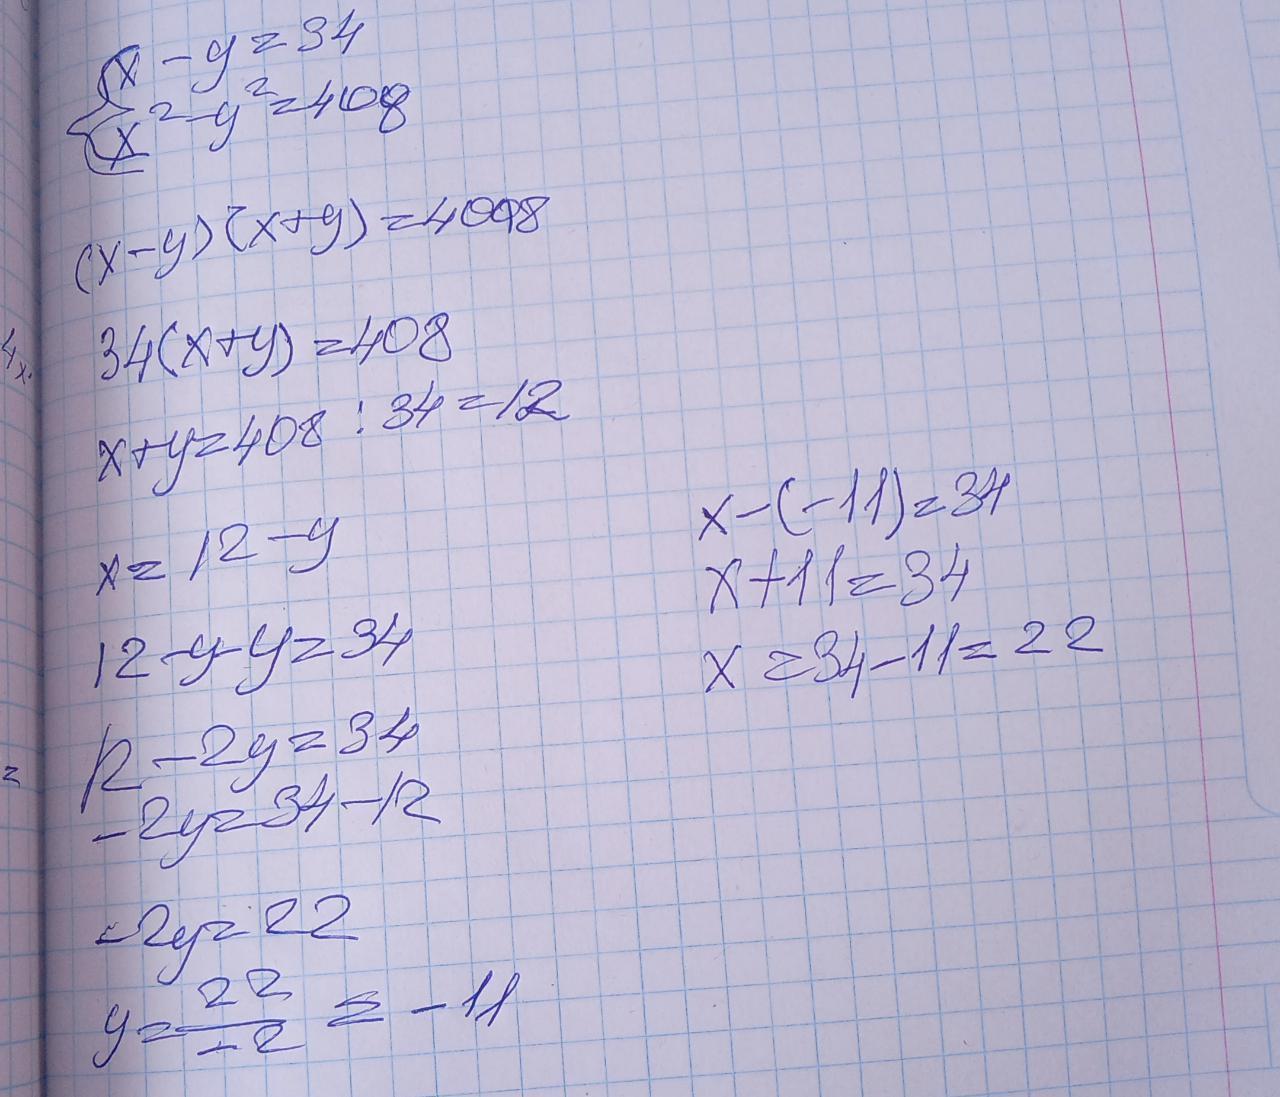 x - y = 34
x² - y² = 408
(x - y)(x + y) = 4098
34(x + y) = 408
x + y = 408 : 34 = 12
x = 12 - y
12 - y - y = 34
12 - 2y = 34
-2y = 34 - 12
-2y = 22
y = 22/-2 = -11
x - (-11) = 34
x + 11 = 34
x = 34 - 11 = 22
4x.
=